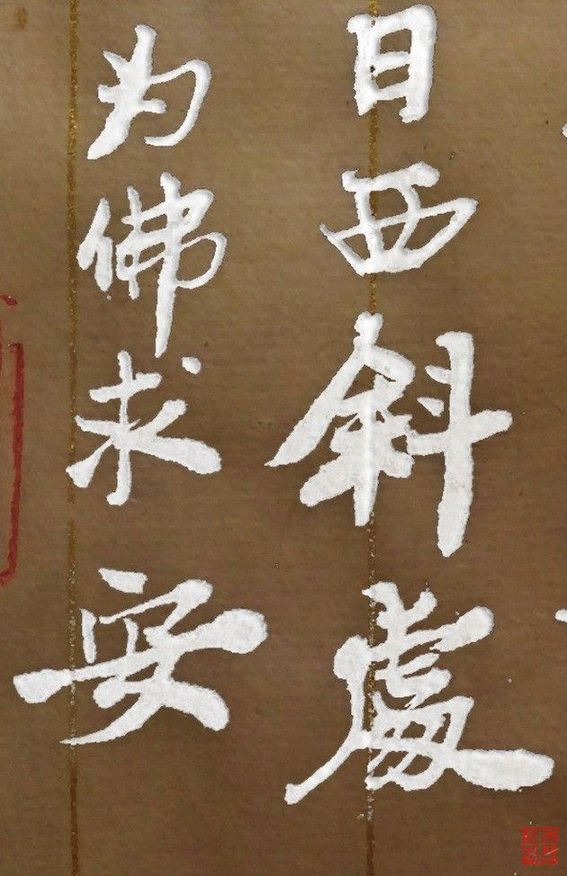 日西斜處
为佛求安